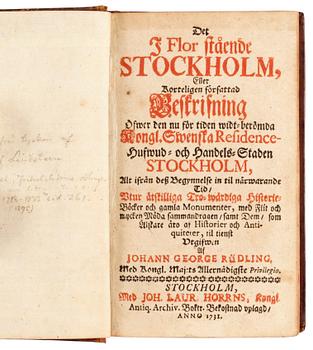 Det
I Flor stående
STOCKHOLM,
Eller
Korteligen författad
Beskrifning
Öfwer den nu för tiden widt-berömda
Kongl. Swenska Residence-
Hufwud- och Handels-Staden
STOCKHOLM,
Alt ifrån deß Begynnelse in til närwarande
Tid/
Utur åtskilliga Tro-wärdiga Historie-
Böcker och gamla Monumenter, med Flit och
mycken Möda sammandragen/ samt Dem/ som
Älskare äro af Historier och Anti-
quiteter, til tienst
Utgifwen
Af
JOHANN GEORGE RÜDLING,
Med Kongl. Maj:ts Allernådigste Privilegio.
STOCKHOLM,
Med JOH. LAUR. HORRNS, Kongl.
Antiq. Archiv. Boktr. Bekostnad uplagd/
ANNO 1731.